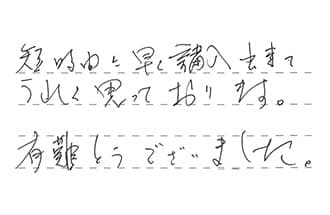 短時間に早く購入出来て
うれしく思っております。
有難とうございました。